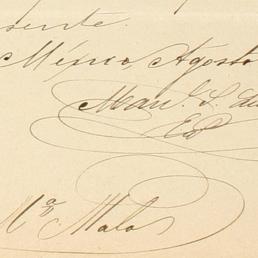 sente.
México, Agosto
Man. S. de
Mª Malo